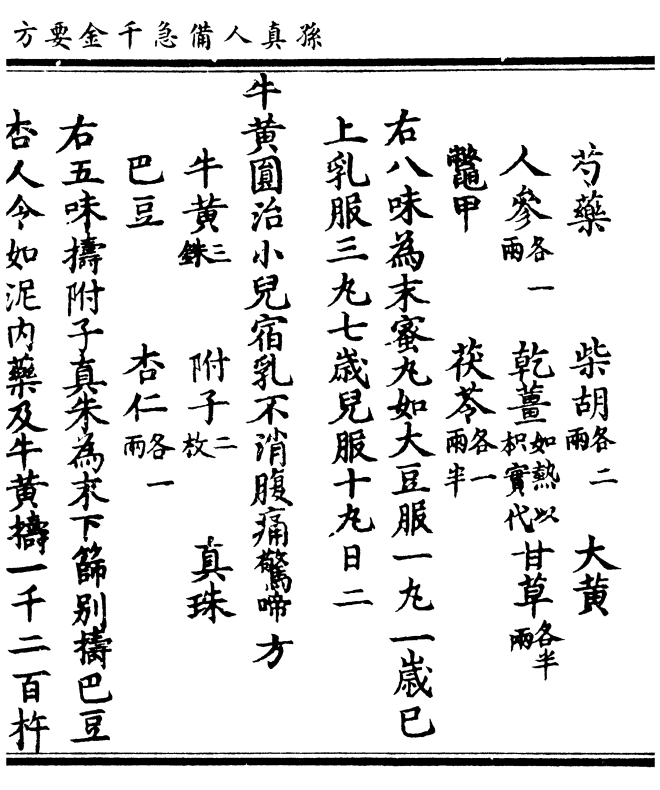 孫真人備急千金要方
芍藥 柴胡各二兩 大黃
人參各一兩 乾薑如熱以枳實代 甘草各半兩
鼈甲 茯苓各一兩半
右八味為末蜜丸如大豆服一丸一歲已
上乳服三丸七歲兒服十丸日二
牛黃圓治小兒宿乳不消腹痛驚啼方
牛黃三銖 附子二枚 真珠
巴豆 杏仁各一兩
右五味擣附子真朱為末下篩別擣巴豆
杏人令如泥內藥及牛黃擣一千二百杵